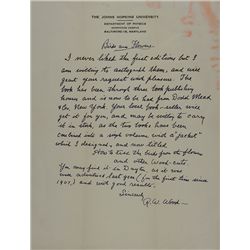 THE JOHNS HOPKINS UNIVERSITY
DEPARTMENT OF PHYSICS
BALTIMORE-18, MARYLAND
Birds and Flowers
I never liked the first editions but I
am willing to autograph them, and will
grant your request with pleasure. The
book has been through three book publishing
houses and is now to be had from Dodd Mead
& Co, New York. Your local book-seller will
get it for you, and may be willing to carry
it in stock, as the two books have been
combined into a single volume with a "jacket"
which I designed, and now titled
How to tell the birds from the flowers
and other Wood-cuts.
You may find it in Dayton, as it was
advertised last year (for the first time since
1907,) and with good results.
Sincerely
R. W. Wood